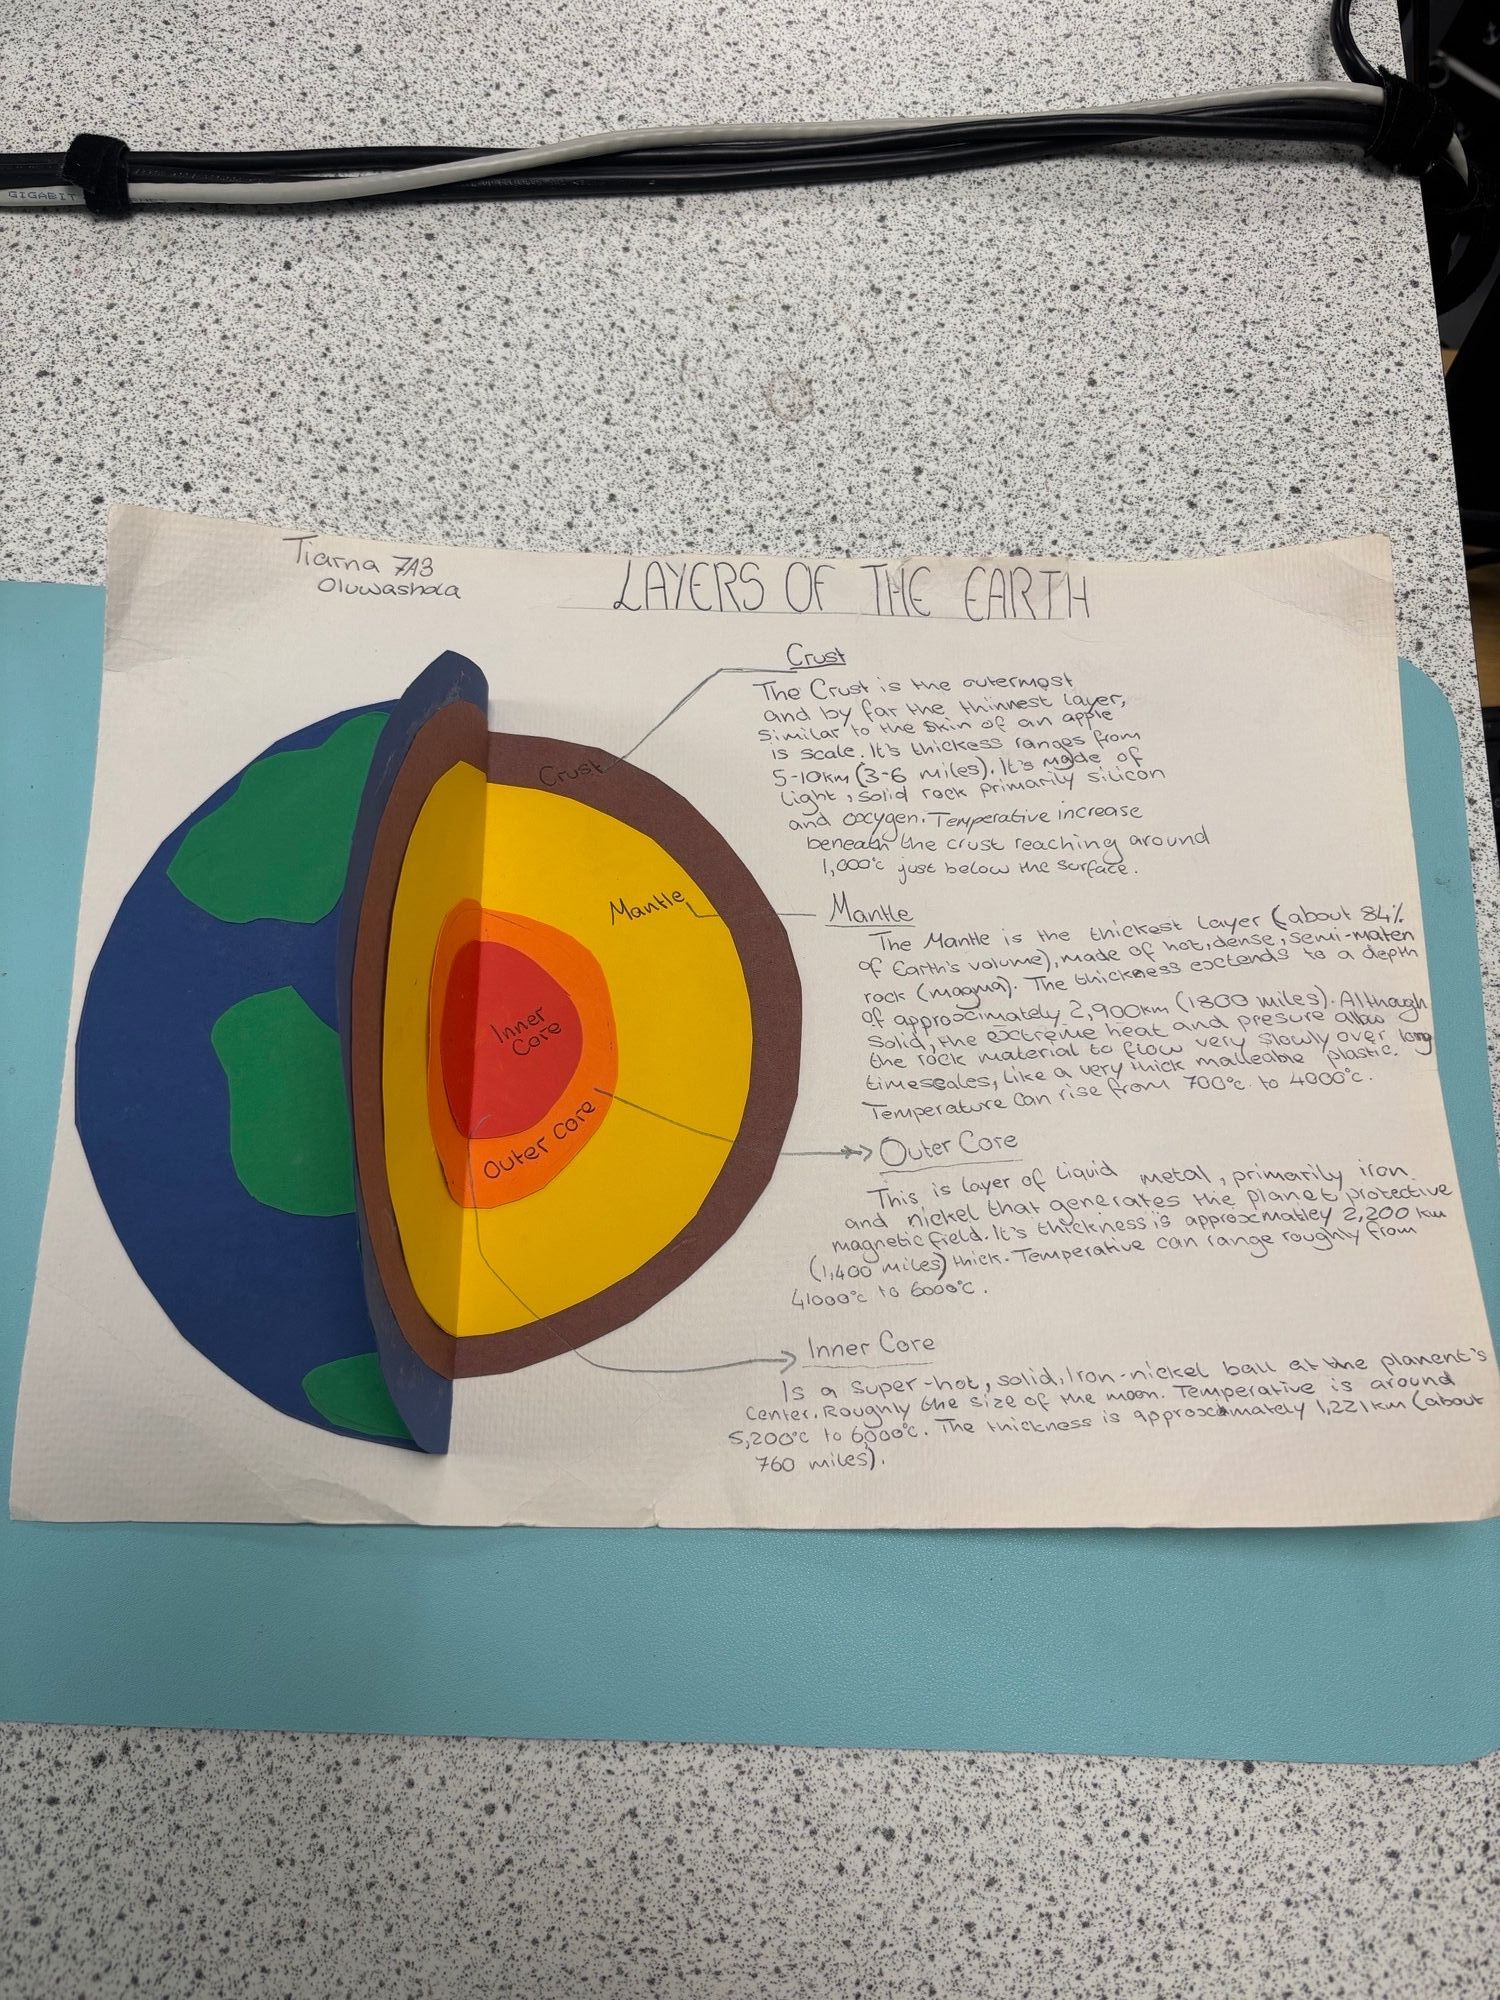 GIGABIT
Tiarna 7A3
Oluwashola
LAYERS OF THE EARTH
Crust
The Crust is the outermost
and by far the thinnest layer,
similar to the skin of an apple
is scale. It's thickess ranges from
5-10km (3-6 miles). It's made of
light, solid rock primarily silicon
and oxygen. Temperative increase
beneath the crust reaching around
1,000°c just below the surface.
Crust
Mantle
Mantle
The Mantle is the thickest layer (about 84%
of Earth's volume), made of hot, dense, semi-molten
rock (magma). The thickness extends to a depth
of approximately 2,900km (1800 miles). Although
solid, the extreme heat and presure allow
the rock material to flow very slowly over long
timescales, like a very thick malleable plastic.
Temperature can rise from 700°c to 4000°c.
Inner
Core
Outer Core
Outer Core
This is layer of liquid metal, primarily iron
and nickel that generates the planet protective
magnetic field. It's thickness is approxmatley 2,200 km
(1,400 miles) thick. Temperative can range roughly from
41000°c to 6000°c.
Inner Core
Is a super-hot, solid, Iron-nickel ball at the planent's
center. Roughly the size of the moon. Temperative is around
5,200°c to 6,000°c. The thickness is approximately 1,221km (about
760 miles).